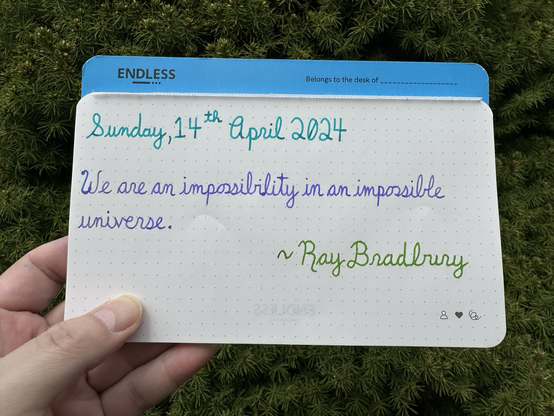 ENDLESS
Belongs to the desk of
Sunday, 14th April 2024
We are an impossibility in an impossible
universe.
~ Ray Bradbury
ENDLESS